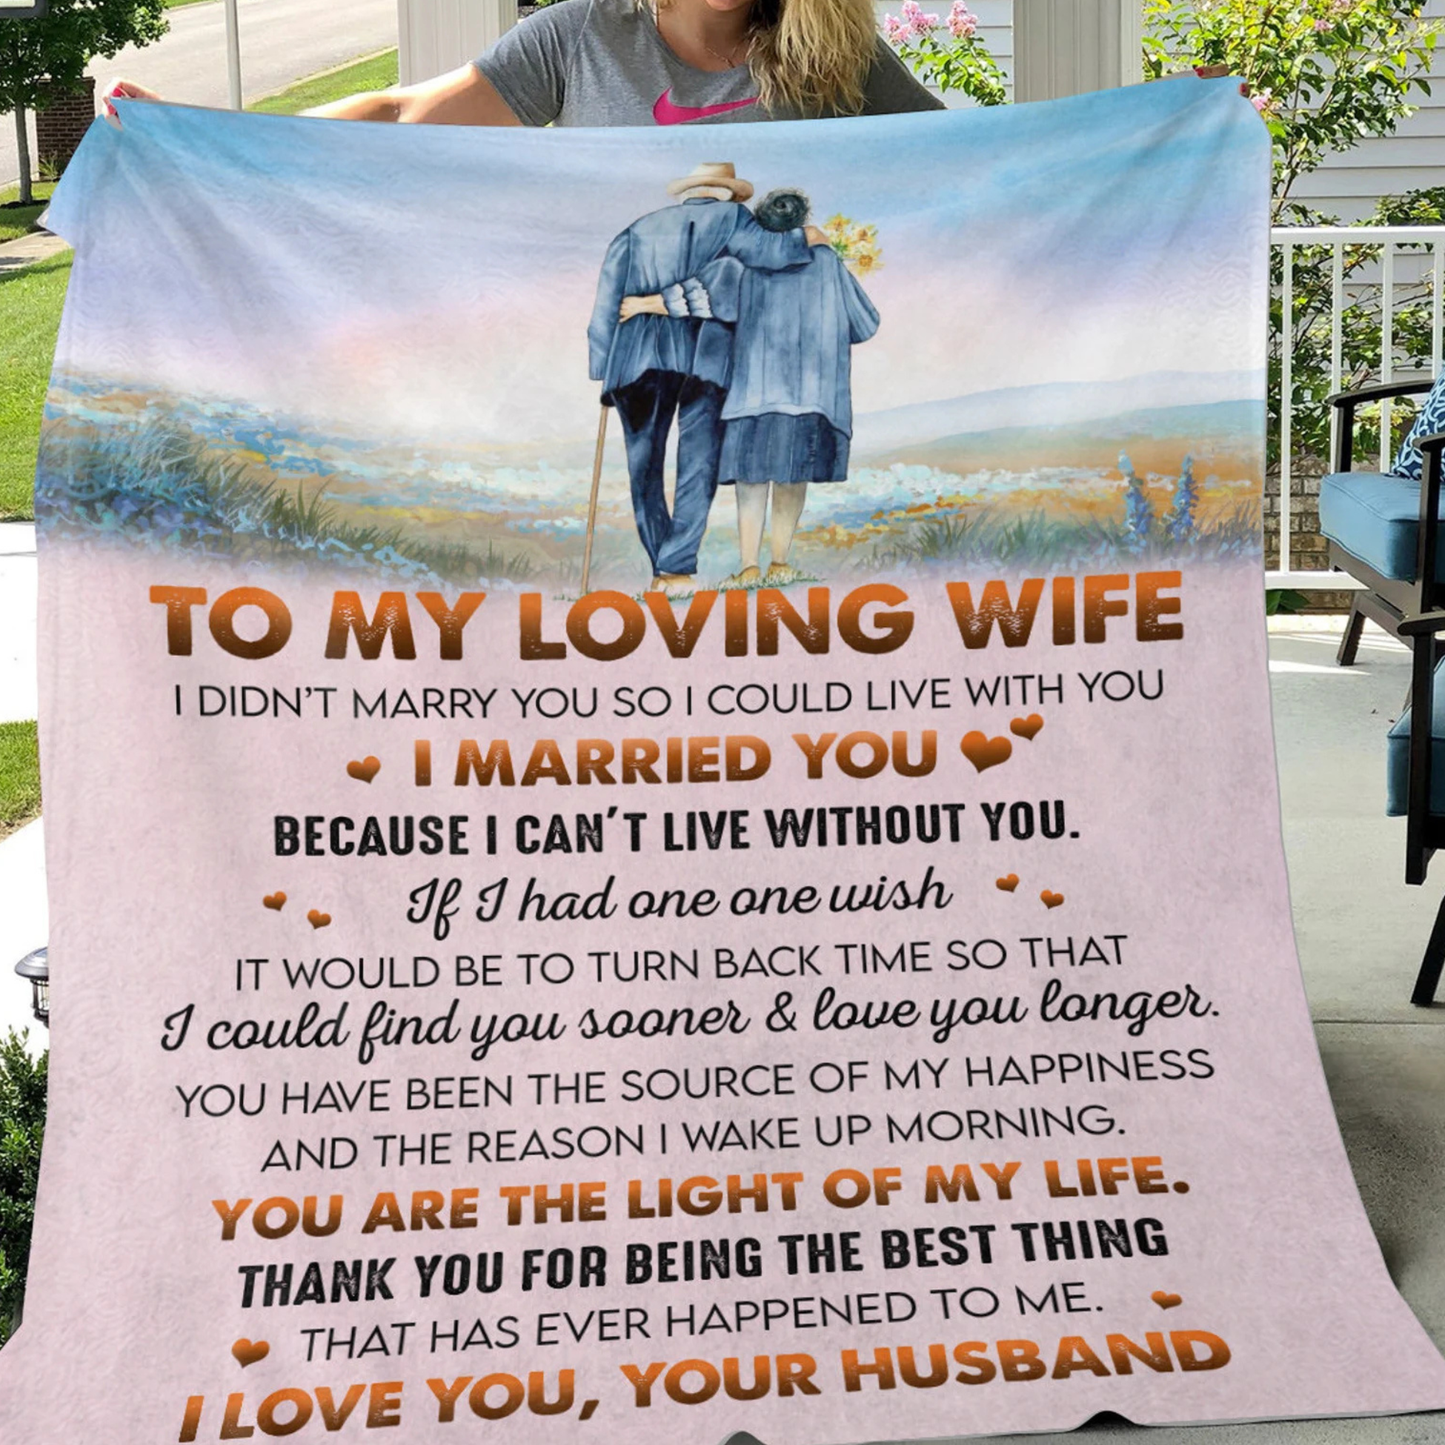 TO MY LOVING WIFE
I DIDN'T MARRY YOU SO I COULD LIVE WITH YOU
I MARRIED YOU
BECAUSE I CAN'T LIVE WITHOUT YOU.
If I had one one wish
IT WOULD BE TO TURN BACK TIME SO THAT
I could find you sooner & love you longer.
YOU HAVE BEEN THE SOURCE OF MY HAPPINESS
AND THE REASON I WAKE UP MORNING.
YOU ARE THE LIGHT OF MY LIFE.
THANK YOU FOR BEING THE BEST THING
THAT HAS EVER HAPPENED TO ME.
I LOVE YOU, YOUR HUSBAND